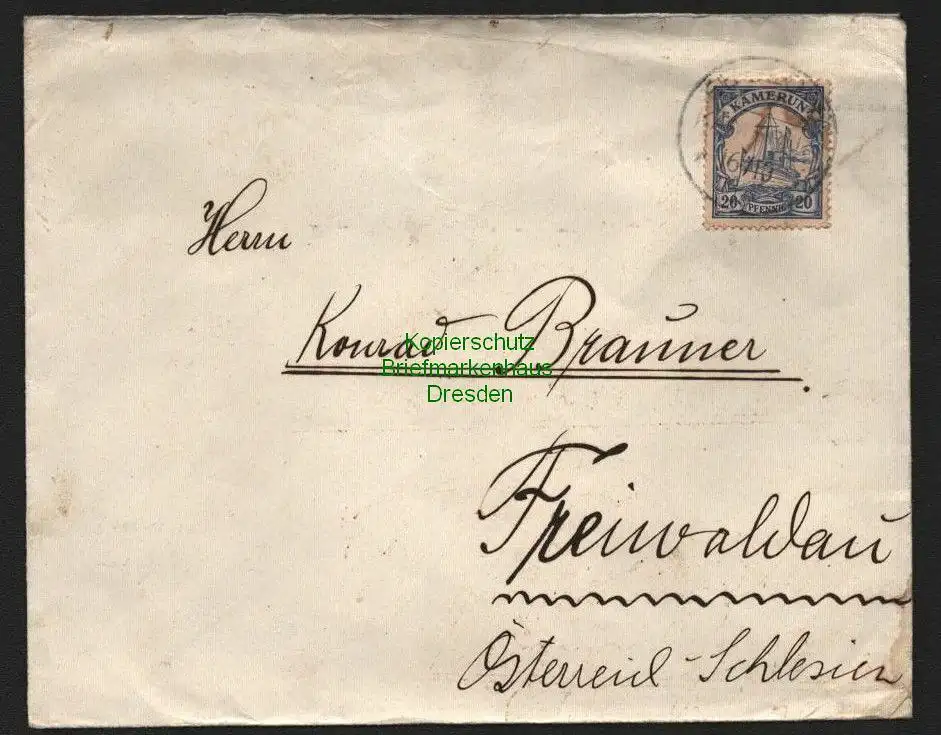 KAMERUN
20 PFENNIG 20
Herrn
Konrad Brauner
Kopierschutz
Briefmarkenhaus
Dresden
Freiwaldau
Österreich-Schlesien